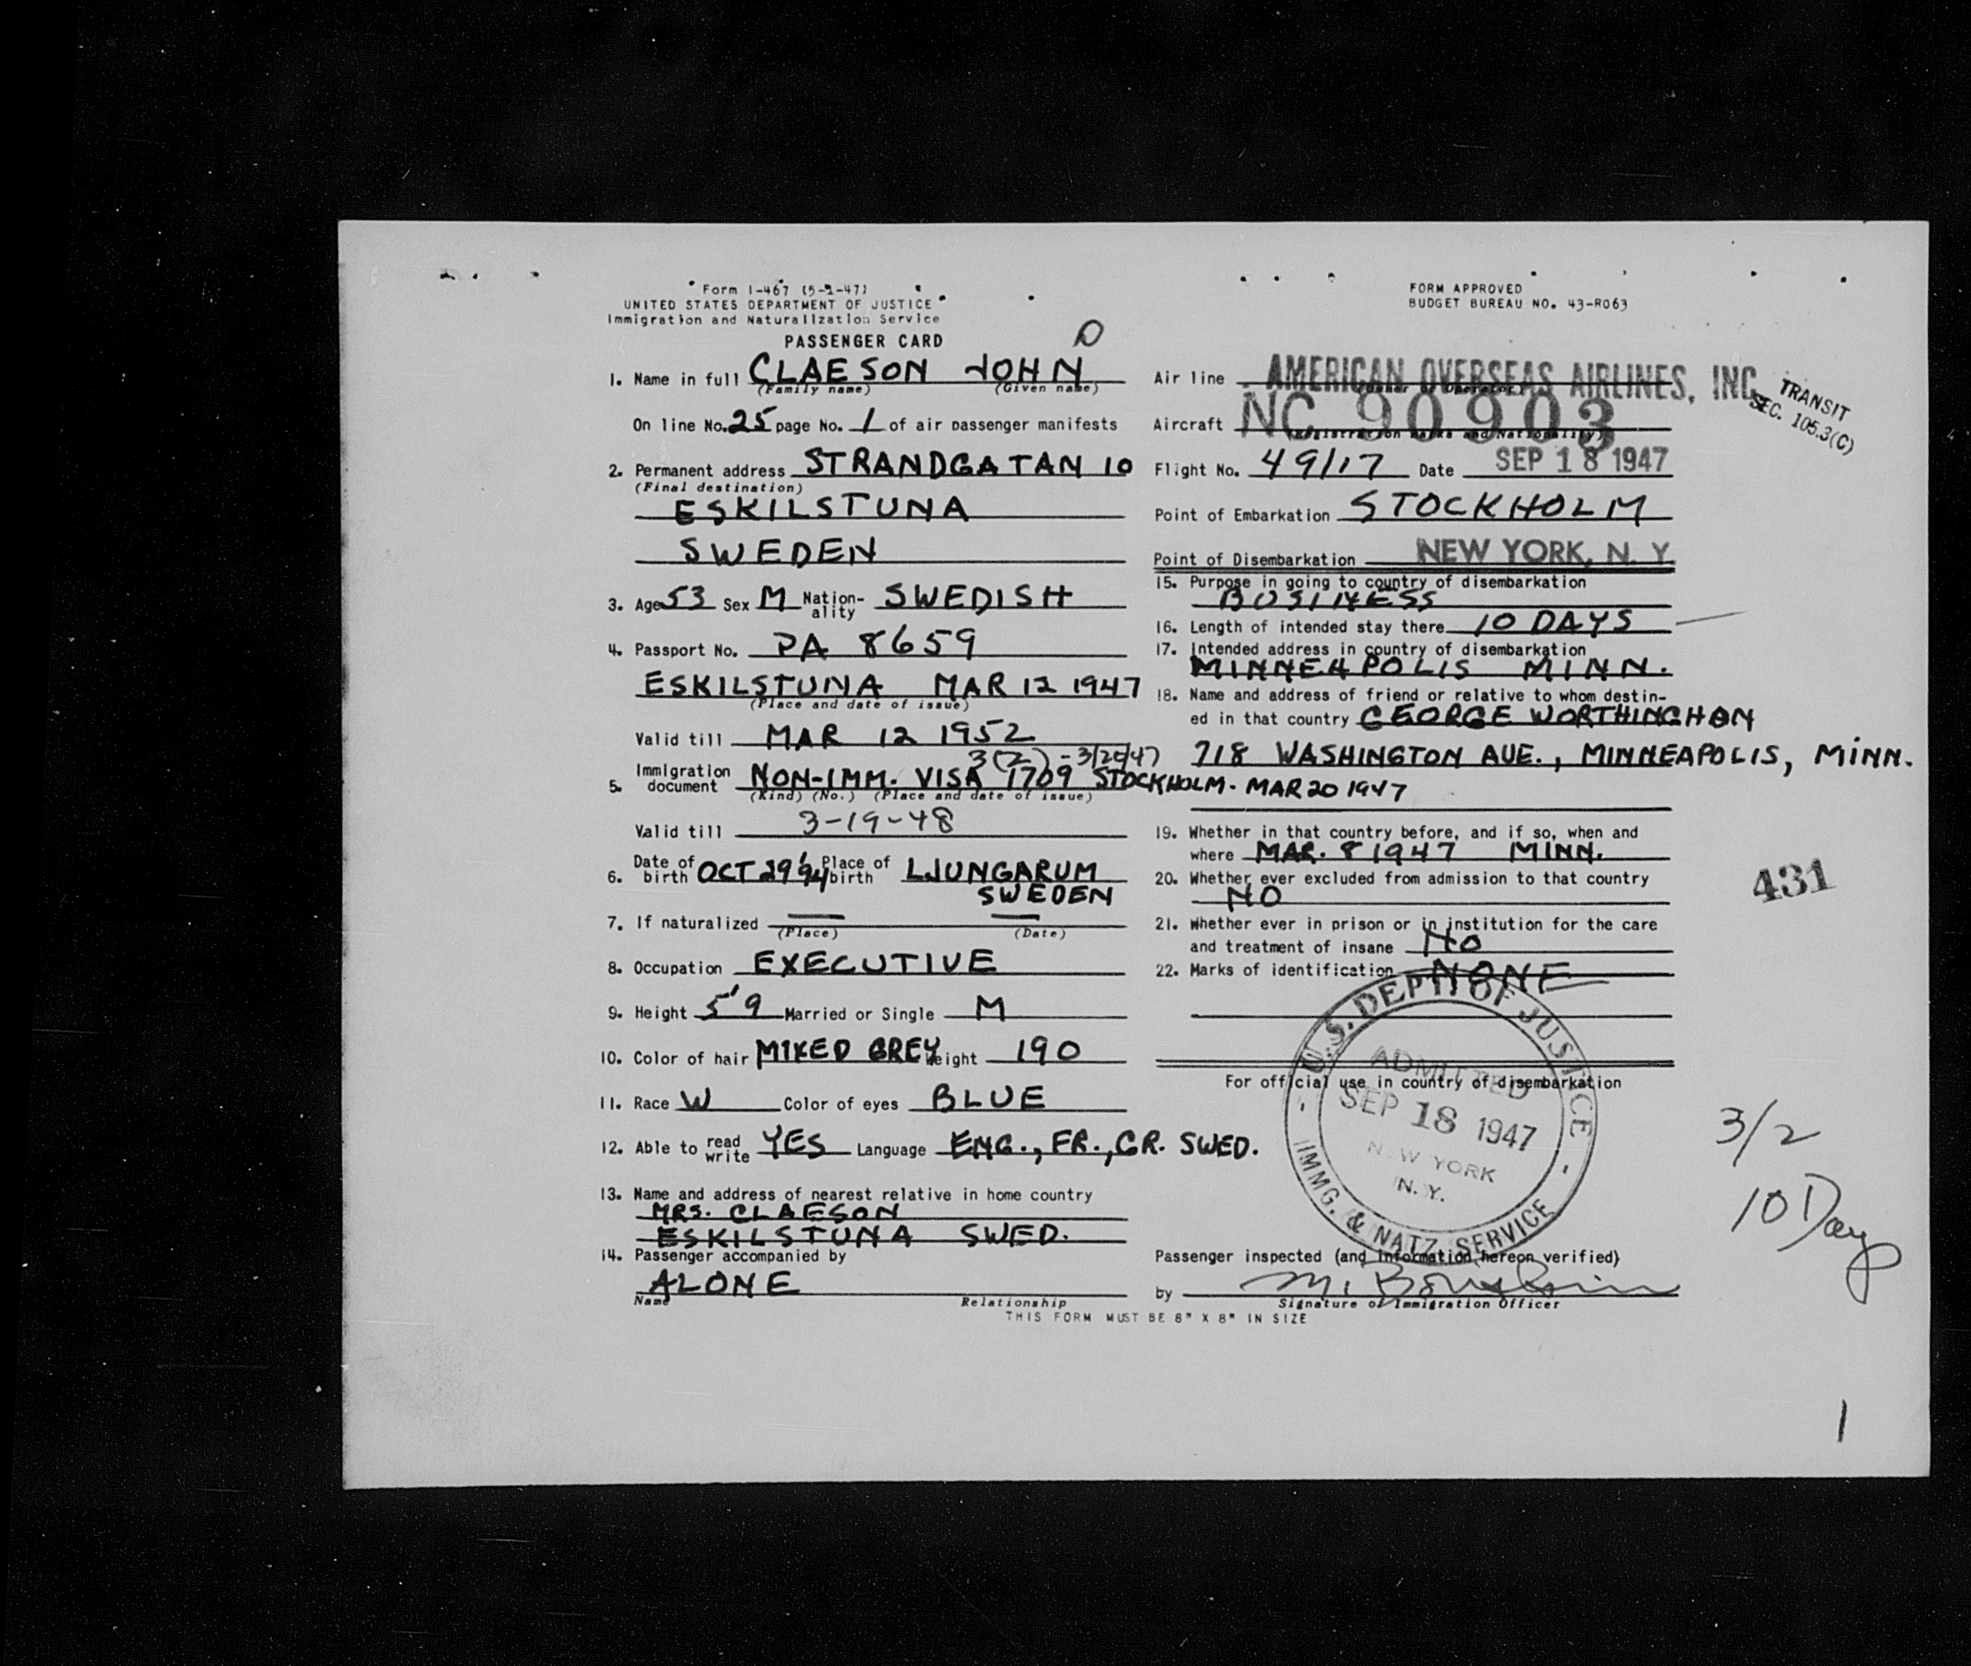 Form I-467 (5-2-47)
UNITED STATES DEPARTMENT OF JUSTICE
Immigration and Naturalization Service
PASSENGER CARD
1. Name in full CLAESON JOHN
(Family name) (Given name)
On line No. 25 page No. 1 of air passenger manifests
2. Permanent address STRANDGATAN 10
(Final destination)
ESKILSTUNA
SWEDEN
3. Age 53 Sex M Nationality SWEDISH
4. Passport No. PA 8659
ESKILSTUNA MAR 12 1947
(Place and date of issue)
Valid till MAR 12 1952
3(2) - 3/20/47
5. Immigration document NON-IMM. VISA 1709 STOCKHOLM. MAR 20 1947
(Kind) (No.) (Place and date of issue)
Valid till 3-19-48
6. Date of birth OCT 29 '94 Place of birth LJUNGARUM
SWEDEN
7. If naturalized — —
(Place) (Date)
8. Occupation EXECUTIVE
9. Height 5'9 Married or Single M
10. Color of hair MIXED GREY Weight 190
11. Race W Color of eyes BLUE
12. Able to read write YES Language ENG., FR., GR. SWED.
13. Name and address of nearest relative in home country
MRS. CLAESON
ESKILSTUNA SWED.
14. Passenger accompanied by
ALONE
Name Relationship
THIS FORM MUST BE 8" X 8" IN SIZE
FORM APPROVED
BUDGET BUREAU NO. 43-R063
Air line AMERICAN OVERSEAS AIRLINES, INC.
(Owner or Operator)
TRANSIT
SEC. 105.3(C)
Aircraft NC 90903
(Registration Marks and Nationality)
Flight No. 49/17 Date SEP 18 1947
Point of Embarkation STOCKHOLM
Point of Disembarkation NEW YORK, N. Y.
15. Purpose in going to country of disembarkation
BUSINESS
16. Length of intended stay there 10 DAYS
17. Intended address in country of disembarkation
MINNEAPOLIS MINN.
18. Name and address of friend or relative to whom destin-
ed in that country GEORGE WORTHINGHON
718 WASHINGTON AUE., MINNEAPOLIS, MINN.
19. Whether in that country before, and if so, when and
where MAR. 8 1947 MINN.
20. Whether ever excluded from admission to that country
NO
431
21. Whether ever in prison or in institution for the care
and treatment of insane NO
22. Marks of identification NONE
For official use in country of disembarkation
U.S. DEPT. OF JUSTICE
ADMITTED
SEP 18 1947
NEW YORK
N. Y.
IMMG. & NATZ. SERVICE
3/2
10 Days
Passenger inspected (and information hereon verified)
by
Signature of Immigration Officer
1